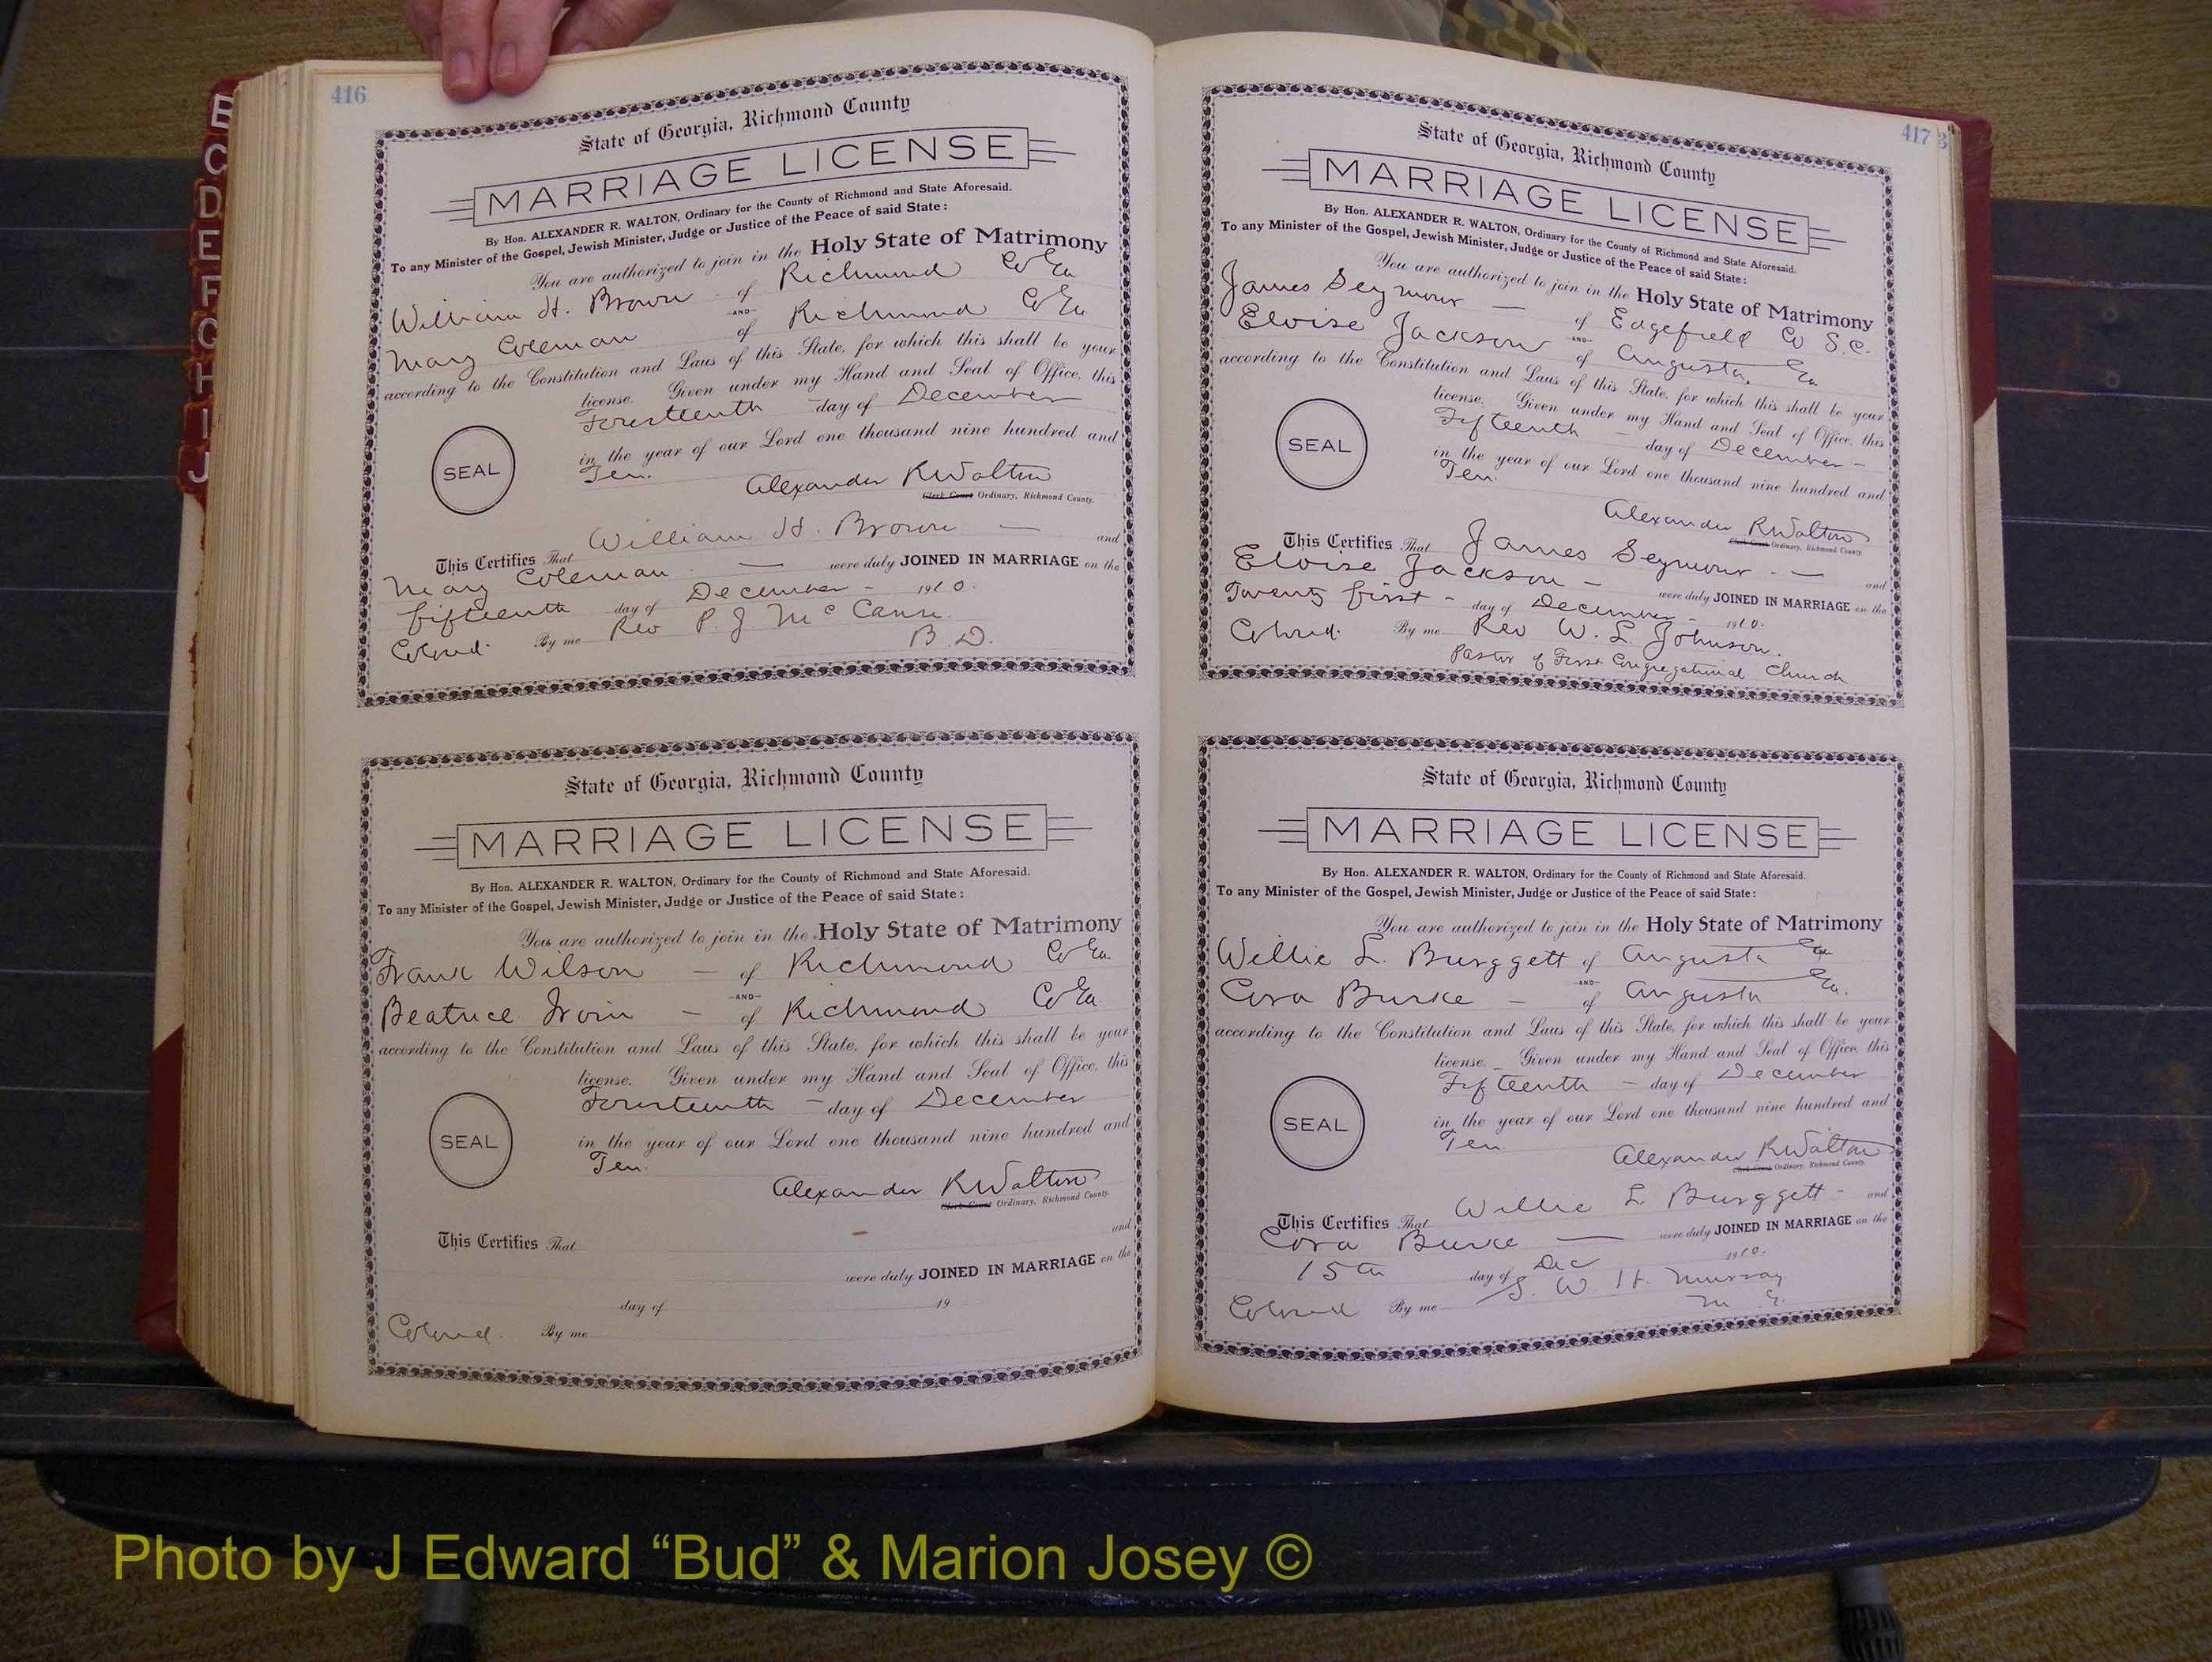 B
C
D
E
F
G
H
I
J
416
State of Georgia, Richmond County
MARRIAGE LICENSE
By Hon. ALEXANDER R. WALTON, Ordinary for the County of Richmond and State Aforesaid.
To any Minister of the Gospel, Jewish Minister, Judge or Justice of the Peace of said State:
You are authorized to join in the Holy State of Matrimony
William H. Brown - of Richmond Co Ga
-AND-
Mary Coleman of Richmond Co Ga
according to the Constitution and Laws of this State, for which this shall be your
license. Given under my Hand and Seal of Office, this
Fourteenth - day of December
in the year of our Lord one thousand nine hundred and
Ten.
SEAL
Alexander R Walton
Clerk Court Ordinary, Richmond County.
This Certifies That William H. Brown — and
Mary Coleman — were duly JOINED IN MARRIAGE on the
fifteenth day of December - 1910.
Colored. By me Rev P. J. McCann
B. D.
State of Georgia, Richmond County
MARRIAGE LICENSE
By Hon. ALEXANDER R. WALTON, Ordinary for the County of Richmond and State Aforesaid.
To any Minister of the Gospel, Jewish Minister, Judge or Justice of the Peace of said State:
You are authorized to join in the Holy State of Matrimony
Frank Wilson — of Richmond Co Ga.
-AND-
Beatrice — of Richmond Co Ga.
according to the Constitution and Laws of this State, for which this shall be your
license. Given under my Hand and Seal of Office, this
Fourteenth - day of December
in the year of our Lord one thousand nine hundred and
Ten.
SEAL
Alexander R Walton
Clerk Court Ordinary, Richmond County.
This Certifies That and
were duly JOINED IN MARRIAGE on the
day of 19
Colored. By me
417
State of Georgia, Richmond County
MARRIAGE LICENSE
By Hon. ALEXANDER R. WALTON, Ordinary for the County of Richmond and State Aforesaid.
To any Minister of the Gospel, Jewish Minister, Judge or Justice of the Peace of said State:
You are authorized to join in the Holy State of Matrimony
James Seymour — of Edgefield Co S.C.
-AND-
Eloise Jackson of Augusta, Ga
according to the Constitution and Laws of this State, for which this shall be your
license. Given under my Hand and Seal of Office, this
Fifteenth - day of December -
in the year of our Lord one thousand nine hundred and
Ten.
SEAL
Alexander R Walton
Clerk Court Ordinary, Richmond County.
This Certifies That James Seymour - — and
Eloise Jackson - were duly JOINED IN MARRIAGE on the
Twenty first - day of December - 1910.
Colored. By me Rev W. L. Johnson.
Pastor of First Congregational Church
State of Georgia, Richmond County
MARRIAGE LICENSE
By Hon. ALEXANDER R. WALTON, Ordinary for the County of Richmond and State Aforesaid.
To any Minister of the Gospel, Jewish Minister, Judge or Justice of the Peace of said State:
You are authorized to join in the Holy State of Matrimony
Willie L. Burggett of Augusta Ga
-AND-
Cora Burke - of Augusta Ga.
according to the Constitution and Laws of this State, for which this shall be your
license. Given under my Hand and Seal of Office, this
Fifteenth - day of December
in the year of our Lord one thousand nine hundred and
Ten
SEAL
Alexander R Walton
Clerk Court Ordinary, Richmond County.
This Certifies That Willie L Burggett - and
Cora Burke — were duly JOINED IN MARRIAGE on the
15th day of Dec 1910.
Colored By me S. W. H. Murray
M. G.
Photo by J Edward “Bud” & Marion Josey ©